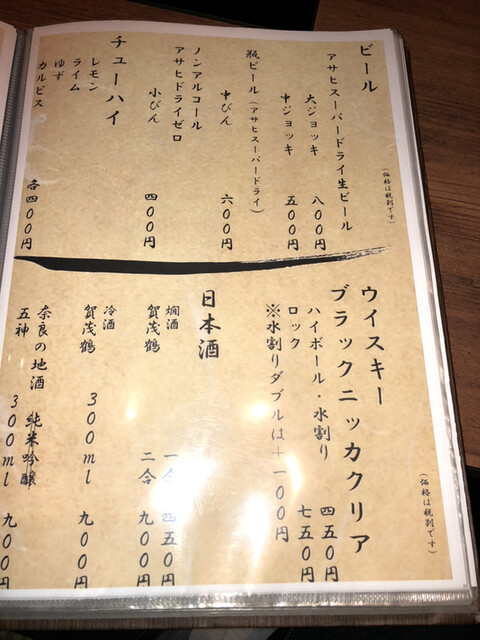 ビール
(価格は税別です)
アサヒスーパードライ生ビール
大ジョッキ 八〇〇円
中ジョッキ 五〇〇円
瓶ビール(アサヒスーパードライ)
中びん 六〇〇円
ノンアルコール
アサヒドライゼロ
小びん 四〇〇円
チューハイ
レモン
ライム
ゆず
カルピス 各四〇〇円
ウイスキー
(価格は税別です)
ブラックニッカクリア
ハイボール・水割り 四五〇円
ロック 七五〇円
※水割りダブルは+一〇〇円
日本酒
燗酒
賀茂鶴 一合 四五〇円
二合 九〇〇円
冷酒
賀茂鶴 300ml 九〇〇円
奈良の地酒 純米吟醸
五神 300ml 九〇〇円